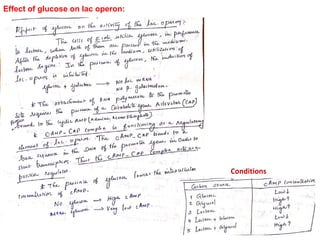 Effect of glucose on lac operon:
Effect of glucose on the activity of the lac operon:-
The cells of E.coli utilize glucose, in preference
to lactose, when both of them are present in the medium.
After the depletion of glucose in the medium, utilization of
lactose begins. In the presence of glucose, the induction of
lac-operon is inhibited
glucose + lactose → No lac mRNA
No β galactosidase.
* The attachment of RNA polymerase to the promoter
site requires the presence of a Catabolite gene Activator (CAP)
bound to the cyclic AMP
* cAMP-CAP complex is functioning as a Regulatory
element of lac-operon. The cAMP-CAP binds to
base sequence in the DNA of the promoter region in order to
start transcription. Thus the CAMP-CAP complex
positive regulator.
* The presence of glucose lowers the intracellular
concentration of cAMP.
No glucose → High cAMP
glucose → Very low cAMP.
Conditions
Carbon source cAMP concentration
1 Glucose Low↓
2 Glycerol High↑
3 Lactose High↑
4 Lactose + Glucose Low↓
5 Lactose + Glycerol High↑